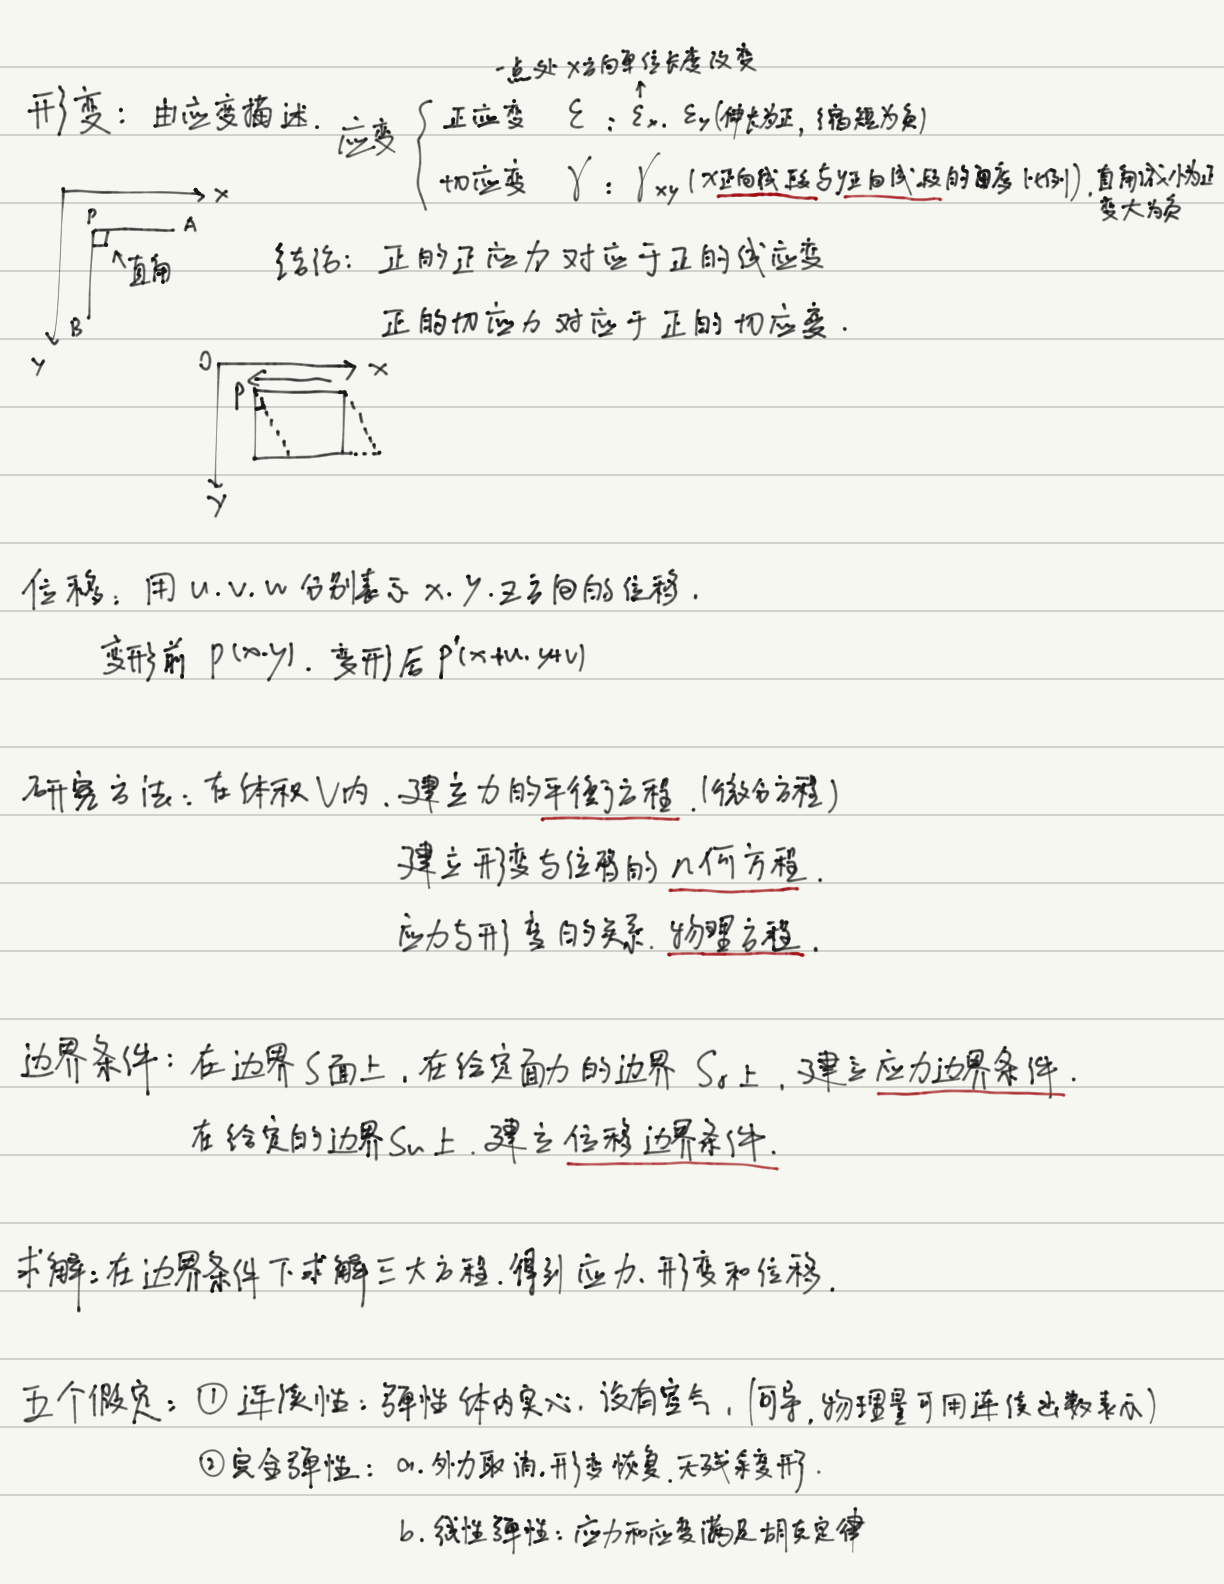 一点处x方向单位长度改变
↑
形变：由应变描述. 应变 { 正应变 ε：εx. εy (伸长为正, 缩短为负)
切应变 γ：γxy (x正向线段与y正向线段的). 直角减小为正
变大为负
x
P A
↖直角
B
y
结论：正的正应力对应于正的线应变
正的切应力对应于正的切应变.
O x
P
y
位移：用u.v.w分别表示x.y.z方向的位移.
变形前 P(x.y). 变形后P'(x+u.y+v)
研究方法：在体积V内.建立力的平衡方程.(微分方程)
建立形变与位移的几何方程.
应力与形变的关系.物理方程.
边界条件：在边界S面上.在给定面力的边界Sσ上.建立应力边界条件.
在给定的边界Su上.建立位移边界条件.
求解：在边界条件下求解三大方程.得到应力、形变和位移.
五个假定：①连续性：弹性体内实心.没有空气.(可导.物理量可用连续函数表示)
②完全弹性：a.外力取消.形变恢复.无残余变形.
b.线性弹性：应力和应变满足胡克定律